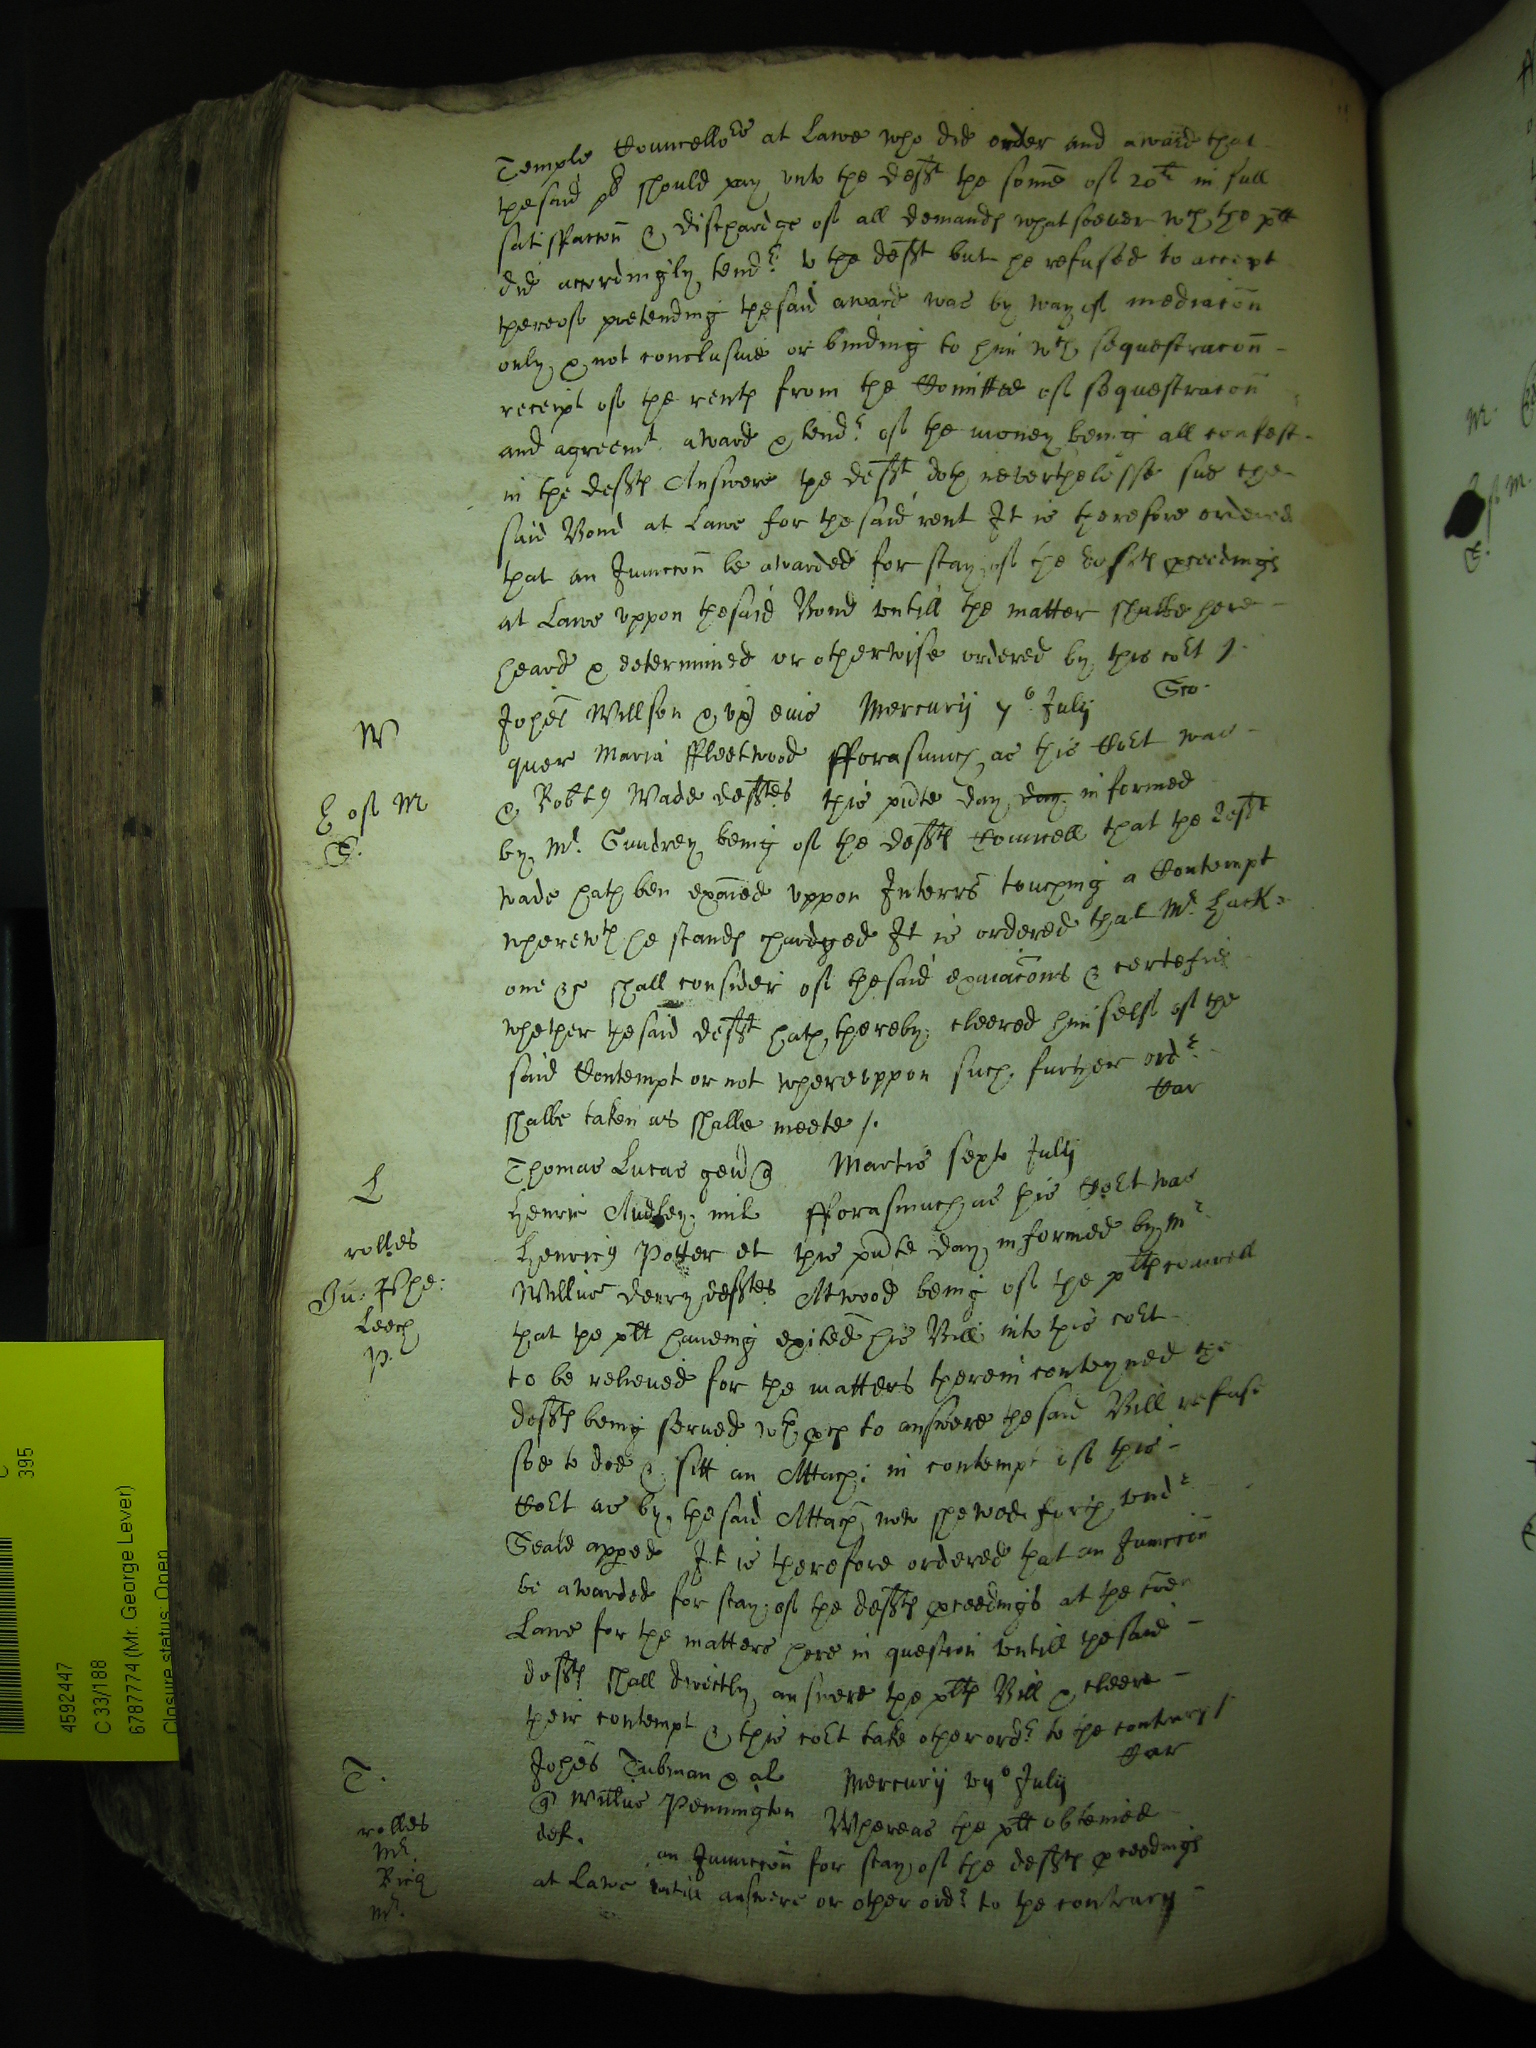 Temple Councello^rs at Lawe who did order and award that
the said pl^t should pay unto the deff^t the some of 20^li in full
satisfaccon & dischardge of all demands whatsoever w^ch the pl^t
did accordingly tend^r to the deff^t but he refused to accept
thereof pretending the said award was by way of mediacon
only & not conclusive or binding to him w^ch sequestracon
receipt of the rents from the Comittee of sequestracon
and agreem^t award & tend^r of the money being all confest
in the deff^ts Answere the deff^t doth neverthelesse sue the
said Bond at Lawe for the said rent It is therefore ordered
that an Iniunccon be awarded for stay of the deff^ts pceedings
at Lawe uppon the said Bond untill the matter shalbe here
heard & determined or otherwise ordered by this co^rt /.
Geo.
W
Johes Willson & ux eius Mercurij 7^o July
quer Maria Fleetwood fforasmuch as this Co^rt was
& Rob^tus Wade defftes this pnte day day informed
H of M
by M^r. being of the deff^ts Councell that the Deff^t
E.
Wade hath ben exaied uppon Interrs touching a Contempt
wherew^th he stands chardged It is ordered that M^r. Hack=
one &c shall consider of the said exaiacons & certefie
whether the said deff^t hath thereby cleered himself of the
said Contempt or not whereuppon such further ord^r
shalbe taken as shalbe meete /.
Car
L
Thomas Lucas gen q Martis sexto July
Henric Audley mil fforasmuch as this Co^rt was
rolles
Henricus Potter et this pnte day informed by M^r
Willius Derry defftes Atwood being of the pl^ts councell
Leech
that the plt haveing exited his Bill into this co^rt
P.
to be releived for the matters therein conteyned the
deff^ts being served w^th pces to answere the said Bill refuse
soe to doe & sitt an Attach: in contempt of this
Co^rt as by the said Attach now shewed forth und^r
Seale apped It is therefore ordered that an Iniunccon
be awarded for stay of the deff^ts pceedings at the Coen
Lawe for the matters here in question untill the said
deff^ts shall directly answere the pl^ts Bill & cleere
their contempt & this co^rt take other ord^r to the contrary /
Car
T.
Johes Tubman & al Mercurij vij^o July
q Willius Pennington Whereas the plt obteined
rolles
def. an Iniunccon for stay of the deff^ts pceedings
M^r.
at Lawe untill answere or other ord^r to the contrary
M^r.
395
4592447
C 33/188
6787774 (Mr. George Lever)
Closure status: Open